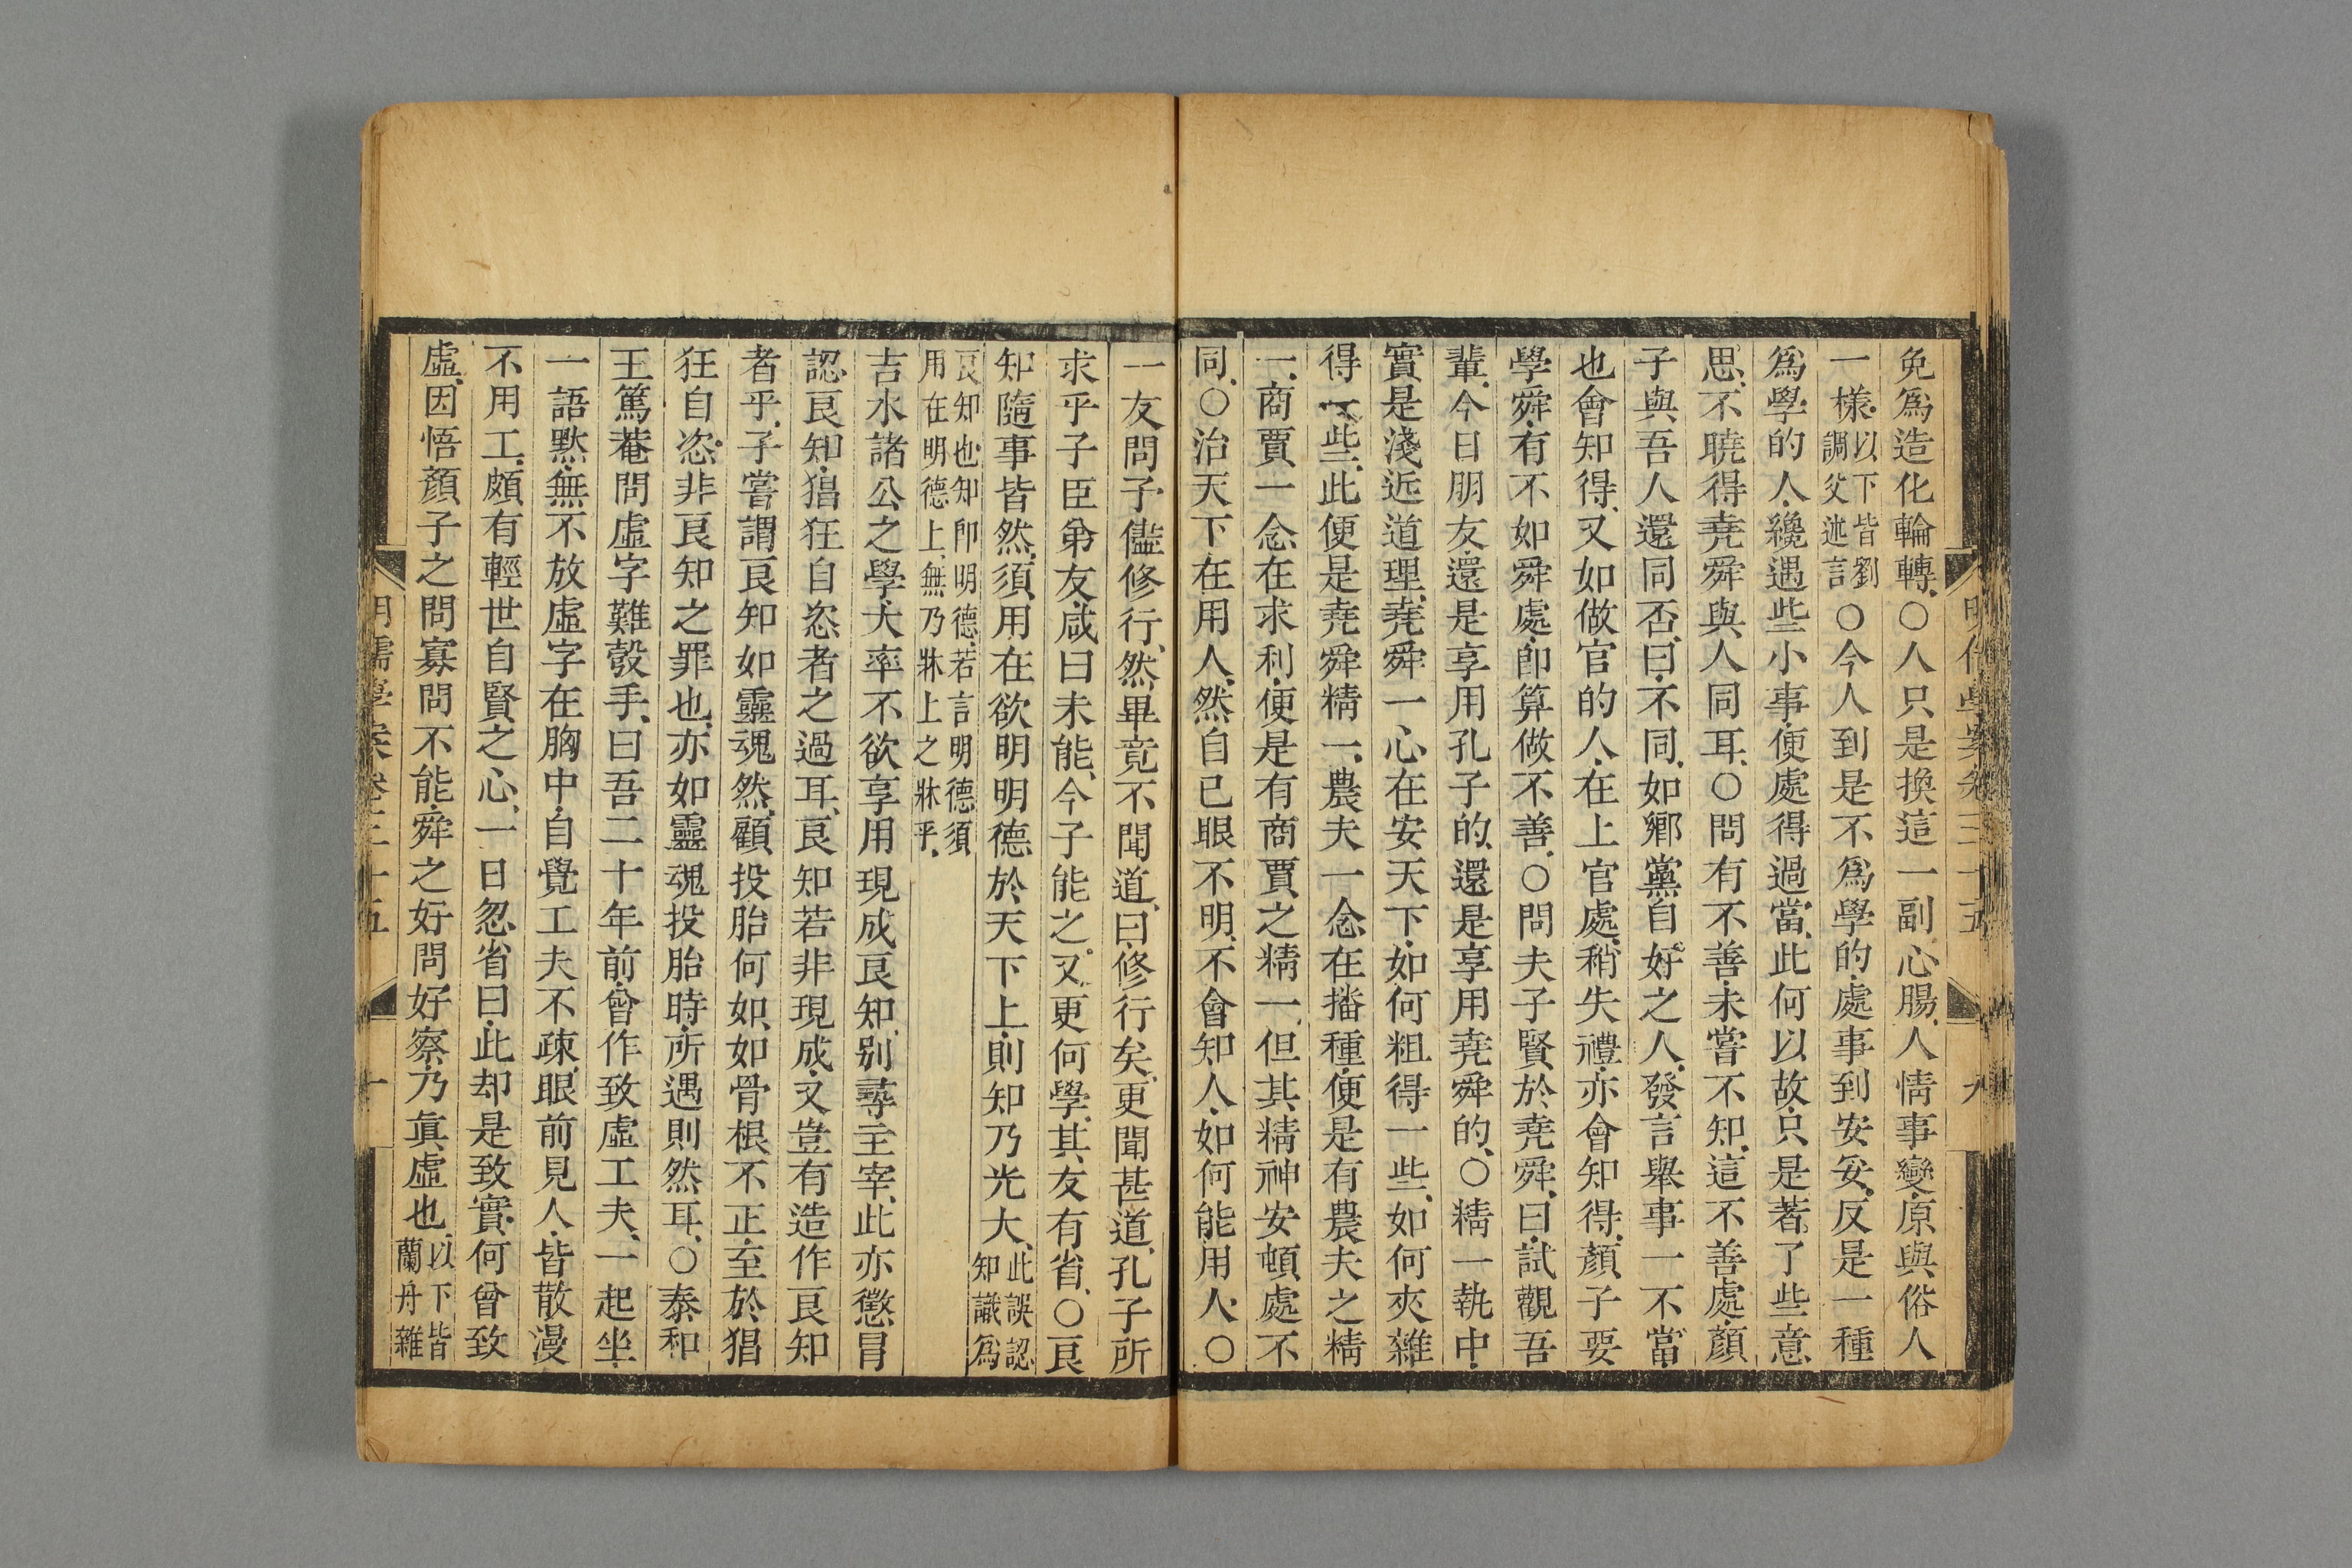 免爲造化輪轉○人只是換這一副心腸人情事變原與俗人
一樣以下皆劉調父述言○今人到是不爲學的處事到安妥反是一種
爲學的人纔遇些小事便處得過當此何以故只是著了些意
思不曉得堯舜與人同耳○問有不善未嘗不知這不善處顏
子與吾人還同否曰不同如鄉黨自好之人發言舉事一不當
也會知得又如做官的人在上官處稍失禮亦會知得顏子要
學舜有不如舜處卽算做不善○問夫子賢於堯舜曰試觀吾
輩今日朋友還是享用孔子的還是享用堯舜的○精一執中
實是淺近道理堯舜一心在安天下如何粗得一些如何夾雜
得一些此便是堯舜精一農夫一念在播種便是有農夫之精
一商賈一念在求利便是有商賈之精一但其精神安頓處不
同○治天下在用人然自已眼不明不會知人如何能用人○
一友問予儘修行然畢竟不聞道曰修行矣更聞甚道孔子所
求乎子臣弟友咸曰未能今子能之又更何學其友有省○良
知隨事皆然須用在欲明明德於天下上則知乃光大此誤認知識爲
良知也知卽明德若言明德須用在明德上無乃牀上之牀乎
吉水諸公之學大率不欲享用現成良知別尋主宰此亦懲冒
認良知猖狂自恣者之過耳良知若非現成又豈有造作良知
者乎予嘗謂良知如靈魂然顧投胎何如如骨根不正至於猖
狂自恣非良知之罪也亦如靈魂投胎時所遇則然耳○泰和
王篤菴問虛字難彀手曰吾二十年前曾作致虛工夫一起坐
一語默無不放虛字在胸中自覺工夫不疎眼前見人皆散漫
不用工頗有輕世自賢之心一日忽省曰此却是致實何曾致
虛因悟顏子之問寡問不能舜之好問好察乃眞虛也以下皆蘭舟雜
明儒學案卷三十五
十
九